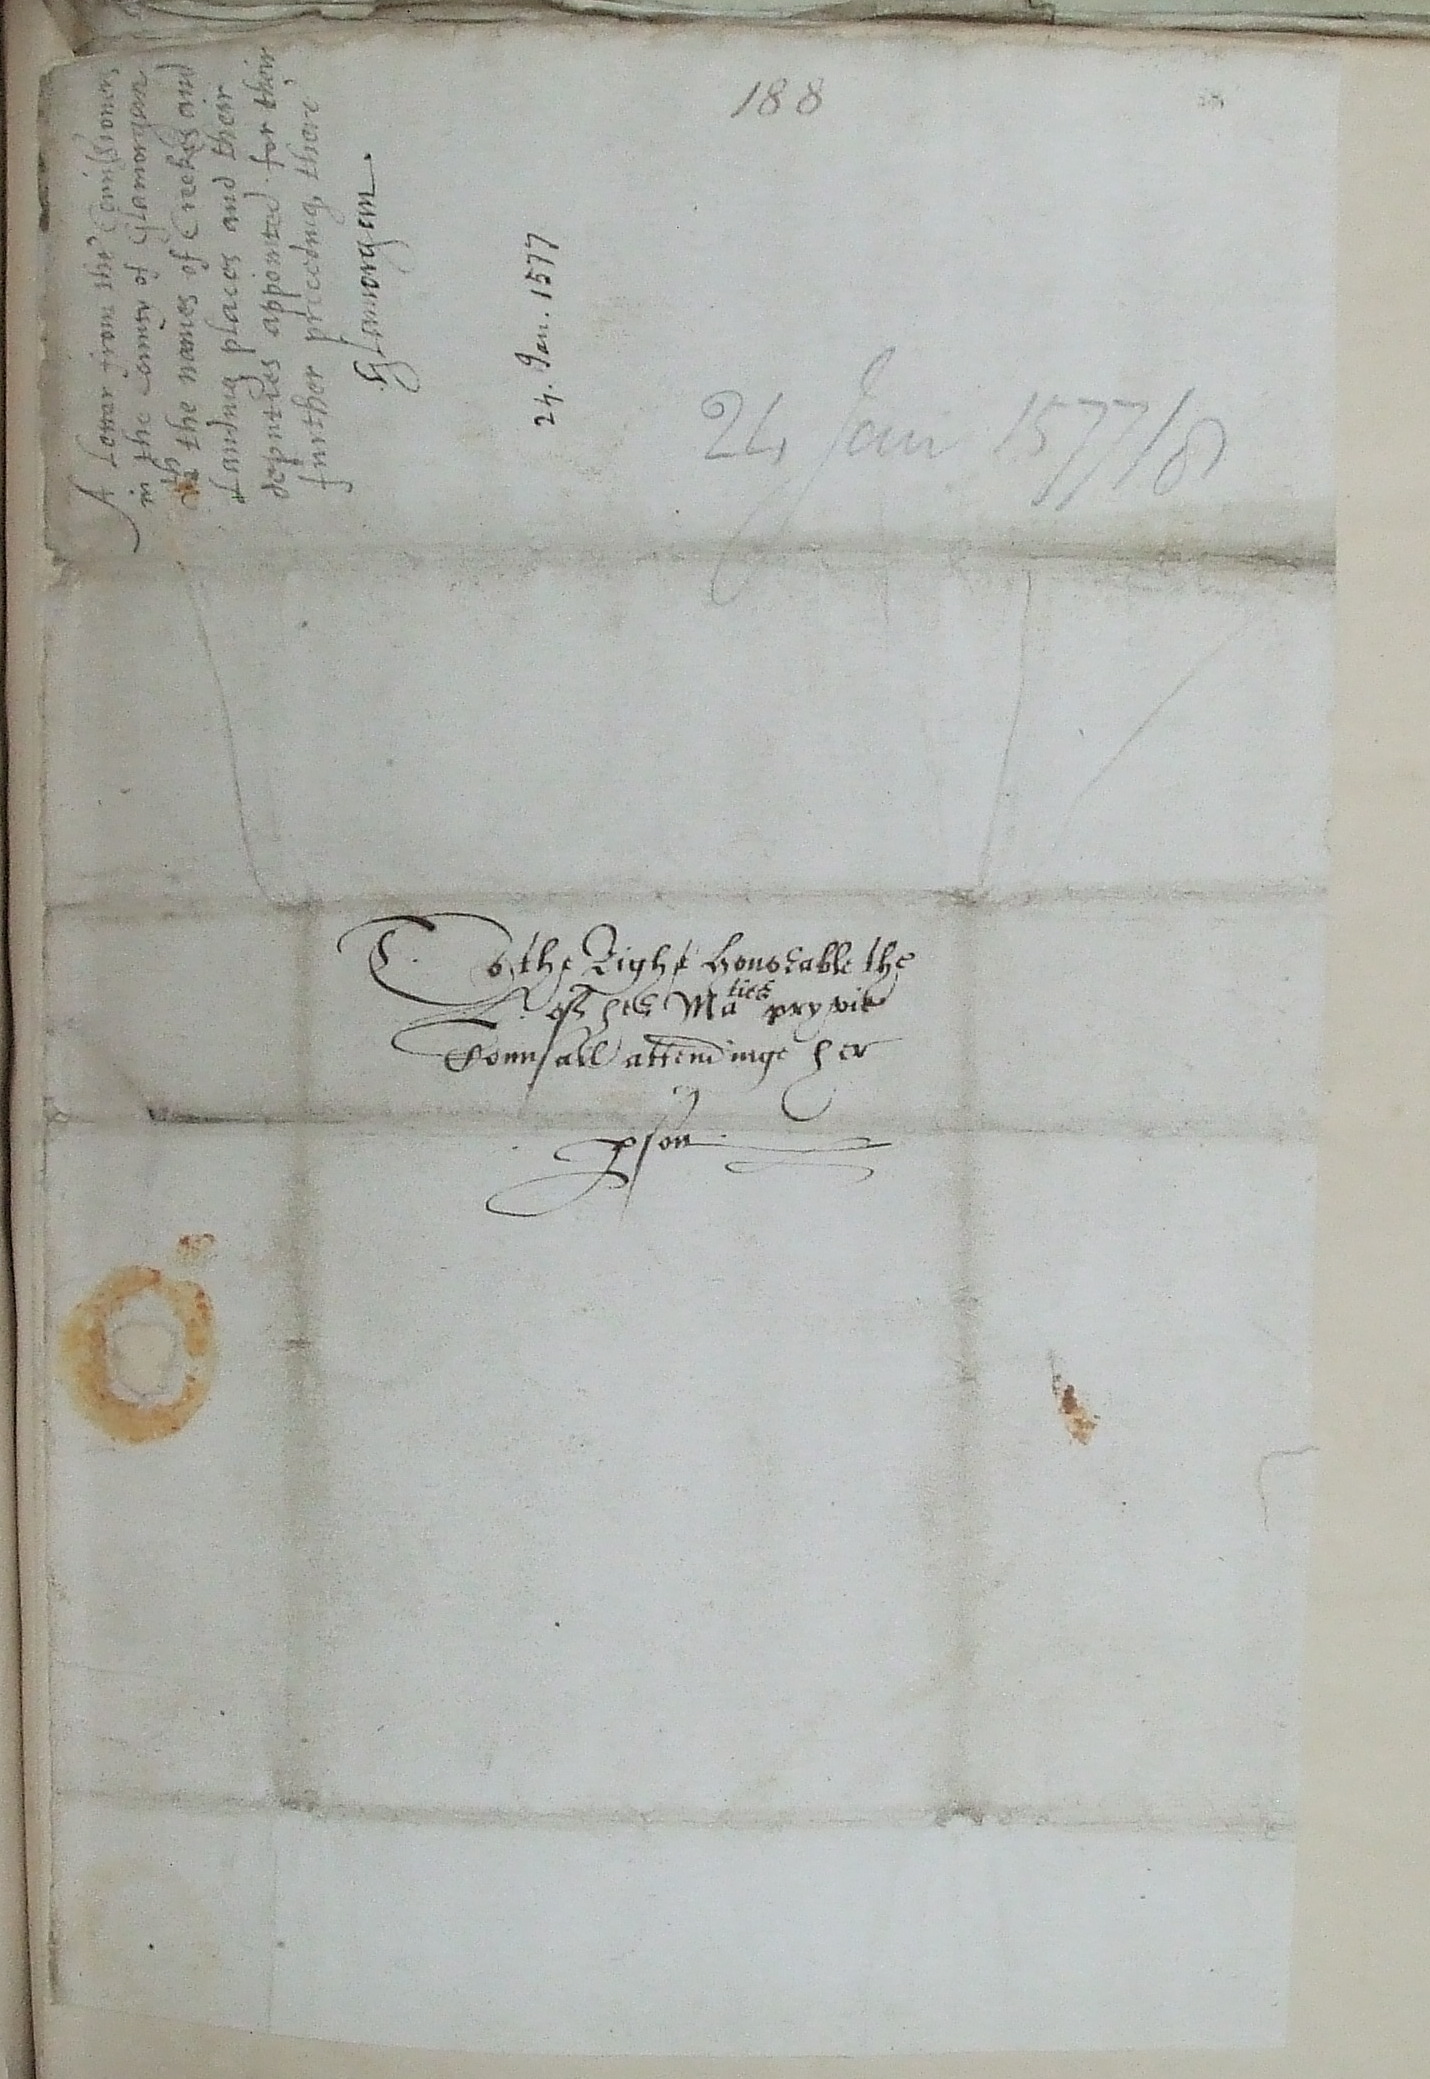 188
A letter from the Comissioners
in the county of Glamorgan
wth the names of Creekes and
Landing places and their
deputies appointed for their
further proceding there
Glamorgan.
24. Jan. 1577
24 Jan 1577/8
To the Right honorable the
of her Maties pryvie
Counsall attendinge her
pson